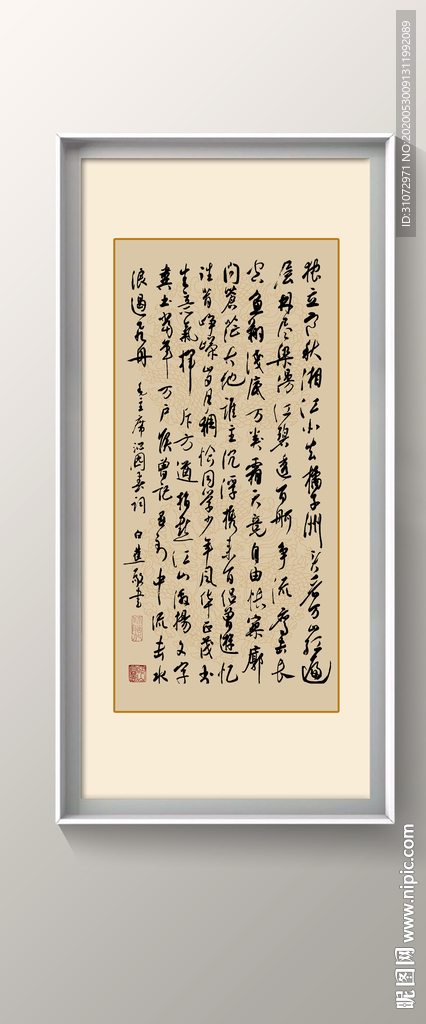 独立寒秋湘江北去橘子洲头看万山红遍
层林尽染漫江碧透百舸争流鹰击长
空鱼翔浅底万类霜天竞自由怅寥廓
问苍茫大地谁主沉浮携来百侣曾游忆
往昔峥嵘岁月稠恰同学少年风华正茂书
生意气挥斥方遒指点江山激扬文字
粪土当年万户侯曾记否到中流击水
浪遏飞舟 毛主席沁园春词 白蕉敬书
ID:31072971 NO:20200530091311992089
昵图网 www.nipic.com